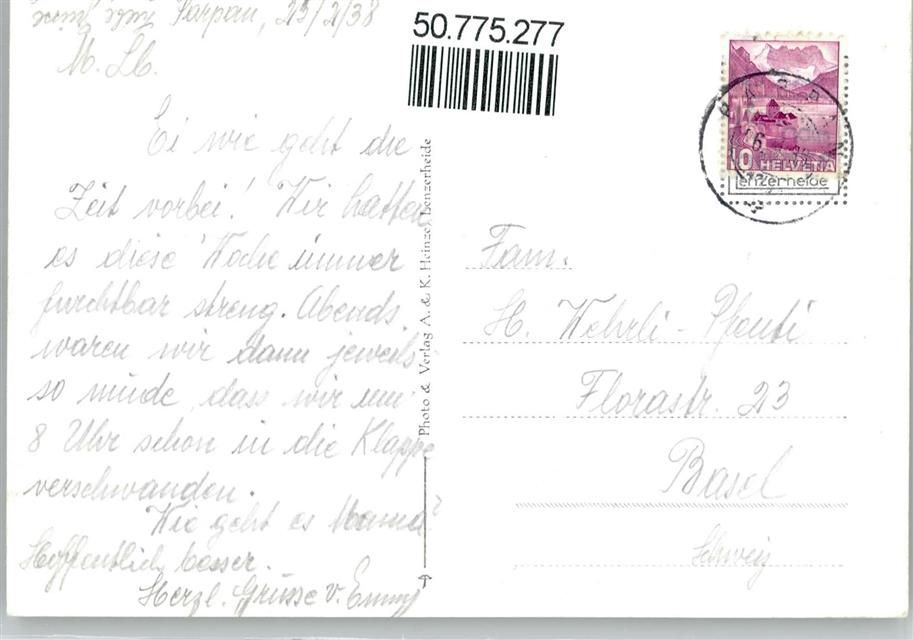 Parpan, 25/2/38
M. Lb.
Ei wie geht die
Zeit vorbei! Wir hatten
es diese Woche immer
furchtbar streng. Abends
waren wir dann jeweils
so müde, dass wir um
8 Uhr schon in die Klappe
verschwanden.
Wie geht es Mama?
Hoffentlich besser.
Herzl. Grüsse v. Emmy
50.775.277
Photo & Verlag A. & K. Heinze Lenzerheide
10 HELVETIA
Lenzerheide
Fam.
H. Wehrli-
Florastr. 23
Basel
Schweiz